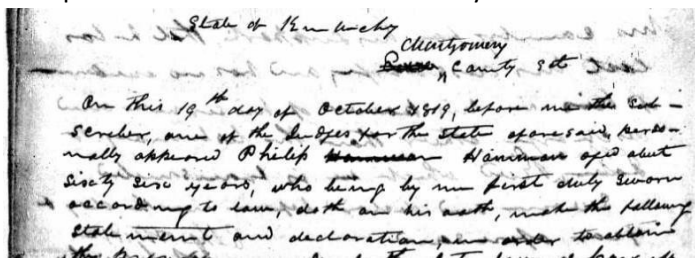 State of Kentucky
Montgomery
County Sct
On this 19th day of October 1819, before me the Sub-
scriber, one of the Judges for the State aforesaid, perso-
nally appeared Philip Hamman aged about
Sixty Six years, who being by me first duly Sworn
according to law, doth on his oath, make the following
Statement and declaration, in order to obtain
the